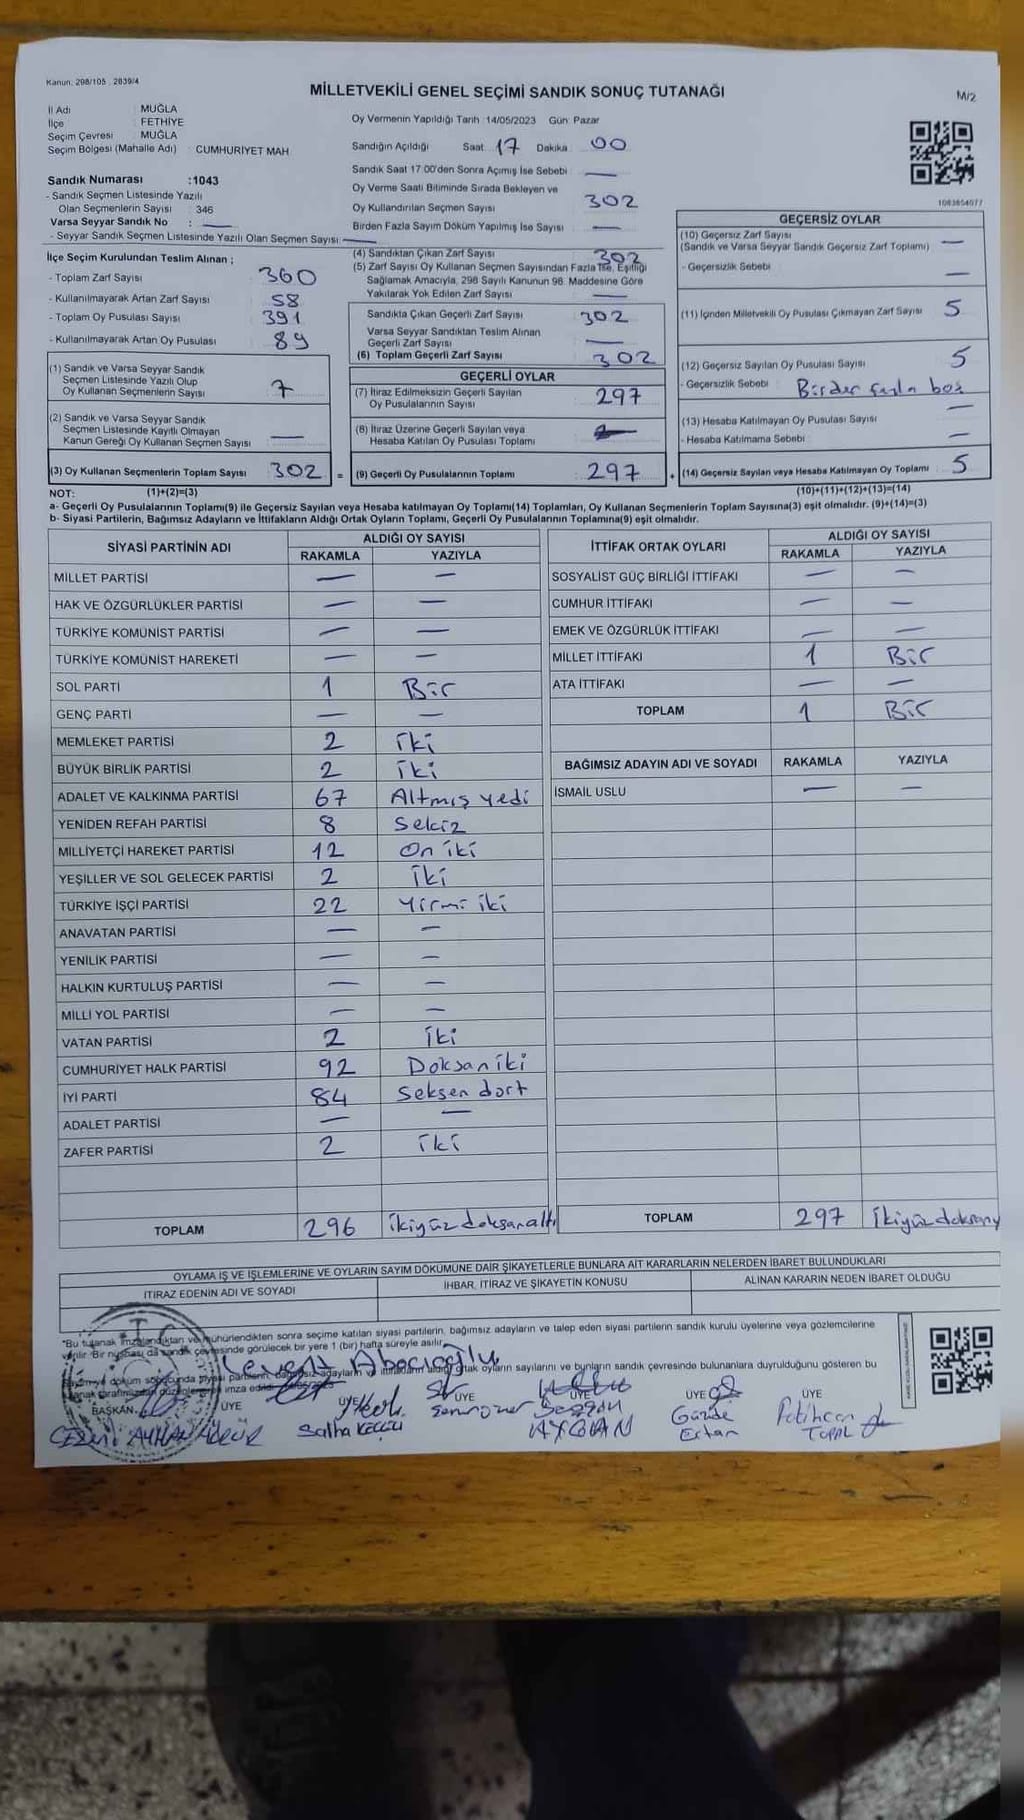 Kanun: 298/105 . 2839/4
MİLLETVEKİLİ GENEL SEÇİMİ SANDIK SONUÇ TUTANAĞI
M/2
İl Adı : MUĞLA
İlçe : FETHİYE
Seçim Çevresi : MUĞLA
Seçim Bölgesi (Mahalle Adı) : CUMHURİYET MAH.
Sandık Numarası :1043
- Sandık Seçmen Listesinde Yazılı
Olan Seçmenlerin Sayısı : 346
Varsa Seyyar Sandık No : —
- Seyyar Sandık Seçmen Listesinde Yazılı Olan Seçmen Sayısı: —
Oy Vermenin Yapıldığı Tarih :14/05/2023 Gün: Pazar
Sandığın Açıldığı Saat: 17 Dakika: 00
Sandık Saat 17:00'den Sonra Açılmış İse Sebebi : —
Oy Verme Saati Bitiminde Sırada Bekleyen ve
Oy Kullandırılan Seçmen Sayısı 302
Birden Fazla Sayım Döküm Yapılmış İse Sayısı : —
1083854077
İlçe Seçim Kurulundan Teslim Alınan ;
- Toplam Zarf Sayısı : 360
- Kullanılmayarak Artan Zarf Sayısı : 58
- Toplam Oy Pusulası Sayısı : 391
- Kullanılmayarak Artan Oy Pusulası : 89
(1) Sandık ve Varsa Seyyar Sandık
Seçmen Listesinde Yazılı Olup
Oy Kullanan Seçmenlerin Sayısı : 7
(2) Sandık ve Varsa Seyyar Sandık
Seçmen Listesinde Kayıtlı Olmayan
Kanun Gereği Oy Kullanan Seçmen Sayısı : —
(3) Oy Kullanan Seçmenlerin Toplam Sayısı 302 =
(4) Sandıktan Çıkan Zarf Sayısı : 302
(5) Zarf Sayısı Oy Kullanan Seçmen Sayısından Fazla İse, Eşitliği
Sağlamak Amacıyla, 298 Sayılı Kanunun 98. Maddesine Göre
Yakılarak Yok Edilen Zarf Sayısı : —
Sandıkta Çıkan Geçerli Zarf Sayısı : 302
Varsa Seyyar Sandıktan Teslim Alınan
Geçerli Zarf Sayısı : —
(6) Toplam Geçerli Zarf Sayısı : 302
GEÇERLİ OYLAR
(7) İtiraz Edilmeksizin Geçerli Sayılan
Oy Pusulalarının Sayısı : 297
(8) İtiraz Üzerine Geçerli Sayılan veya
Hesaba Katılan Oy Pusulası Toplamı : —
(9) Geçerli Oy Pusulalarının Toplamı : 297 +
GEÇERSİZ OYLAR
(10) Geçersiz Zarf Sayısı : —
(Sandık ve Varsa Seyyar Sandık Geçersiz Zarf Toplamı)
- Geçersizlik Sebebi : —
(11) İçinden Milletvekili Oy Pusulası Çıkmayan Zarf Sayısı : 5
(12) Geçersiz Sayılan Oy Pusulası Sayısı : 5
- Geçersizlik Sebebi : Birden fazla boş
(13) Hesaba Katılmayan Oy Pusulası Sayısı : —
- Hesaba Katılmama Sebebi : —
(14) Geçersiz Sayılan veya Hesaba Katılmayan Oy Toplamı : 5
NOT: (1)+(2)=(3) (10)+(11)+(12)+(13)=(14)
a- Geçerli Oy Pusulaları Toplamı(9) ile Geçersiz Sayılan veya Hesaba katılmayan Oy Toplamı(14) Toplamları, Oy Kullanan Seçmenlerin Toplam Sayısına(3) eşit olmalıdır. (9)+(14)=(3)
b- Siyasi Partilerin, Bağımsız Adayların ve İttifakların Aldığı Ortak Oyların Toplamı, Geçerli Oy Pusulalarının Toplamına(9) eşit olmalıdır.
SİYASİ PARTİNİN ADI ALDIĞI OY SAYISI
RAKAMLA YAZIYLA
MİLLET PARTİSİ — —
HAK VE ÖZGÜRLÜKLER PARTİSİ — —
TÜRKİYE KOMÜNİST PARTİSİ — —
TÜRKİYE KOMÜNİST HAREKETİ — —
SOL PARTİ 1 Bir
GENÇ PARTİ — —
MEMLEKET PARTİSİ 2 iki
BÜYÜK BİRLİK PARTİSİ 2 iki
ADALET VE KALKINMA PARTİSİ 67 Altmış yedi
YENİDEN REFAH PARTİSİ 8 Sekiz
MİLLİYETÇİ HAREKET PARTİSİ 12 On iki
YEŞİLLER VE SOL GELECEK PARTİSİ 2 İki
TÜRKİYE İŞÇİ PARTİSİ 22 Yirmi iki
ANAVATAN PARTİSİ — —
YENİLİK PARTİSİ — —
HALKIN KURTULUŞ PARTİSİ — —
MİLLİ YOL PARTİSİ — —
VATAN PARTİSİ 2 İki
CUMHURİYET HALK PARTİSİ 92 Doksan iki
İYİ PARTİ 84 Seksen dört
ADALET PARTİSİ — —
ZAFER PARTİSİ 2 iki
TOPLAM 296 İkiyüz doksan altı
İTTİFAK ORTAK OYLARI ALDIĞI OY SAYISI
RAKAMLA YAZIYLA
SOSYALİST GÜÇ BİRLİĞİ İTTİFAKI — —
CUMHUR İTTİFAKI — —
EMEK VE ÖZGÜRLÜK İTTİFAKI — —
MİLLET İTTİFAKI 1 Bir
ATA İTTİFAKI — —
TOPLAM 1 Bir
BAĞIMSIZ ADAYIN ADI VE SOYADI RAKAMLA YAZIYLA
İSMAİL USLU — —
TOPLAM 297 İkiyüz doksan
OYLAMA İŞ VE İŞLEMLERİNE VE OYLARIN SAYIM DÖKÜMÜNE DAİR ŞİKAYETLERLE BUNLARA AİT KARARLARIN NELERDEN İBARET BULUNDUKLARI
İTİRAZ EDENİN ADI VE SOYADI İHBAR, İTİRAZ VE ŞİKAYETİN KONUSU ALINAN KARARIN NEDEN İBARET OLDUĞU
*Bu tutanak imzalandıktan ve mühürlendikten sonra seçime katılan siyasi partilerin, bağımsız adayların ve talep eden siyasi partilerin sandık kurulu üyelerine veya gözlemcilerine
verilir. Bir nüshası da sandık çevresinde görülecek bir yere 1 (bir) hafta süreyle asılır.
Levent Abacıoğlu
siyasi partilerin, bağımsız adayların ve ittifakların aldığı ortak oyların sayılarını ve bunların sandık çevresinde bulunanlara duyrulduğunu gösteren bu
BAŞKAN ÜYE ÜYE ÜYE ÜYE ÜYE ÜYE
Saliha KEÇELİ
AYGAN
Gamze
Ertan
TOPAL